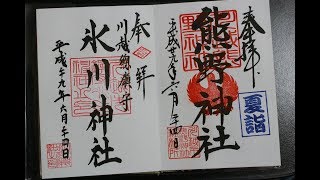 奉拝
熊野神社
平成二十九年六月二十四日
夏詣
奉拝
川越總鎮守
氷川神社
平成二十九年六月二十四日